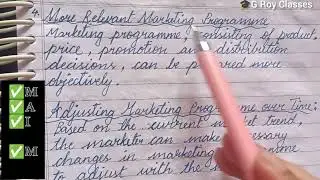 G Roy Classes
4. More Relevant Marketing Programme
Marketing programme, consisting of product,
price, promotion and distribution
decisions, can be prepared more
objectively.
Adjusting Marketing Programme over Time:
Based on the current market trend,
the marketer can make necessary
changes in marketing programme
to adjust with the
M
A
I
M